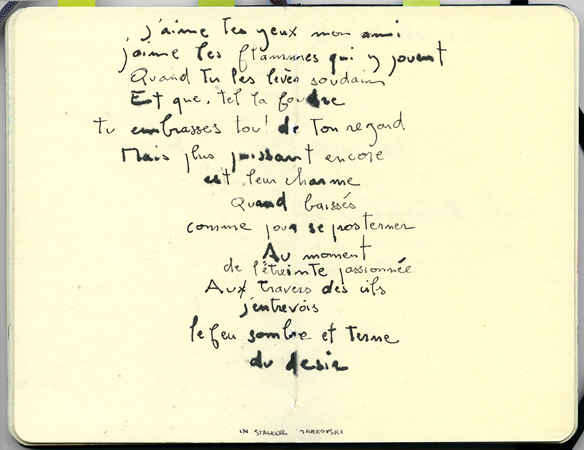 j'aime tes yeux mon ami
j'aime les flammes qui y jouent
Quand tu les lèves soudain
Et que, tel la foudre
tu embrasses tout de ton regard
Mais plus puissant encore
est leur charme
Quand baissés
comme pour se prosterner
Au moment
de l'étreinte passionnée
Aux travers des cils
j'entrevois
le feu sombre et terne
du desir
IN STALKER TARKOVSKI